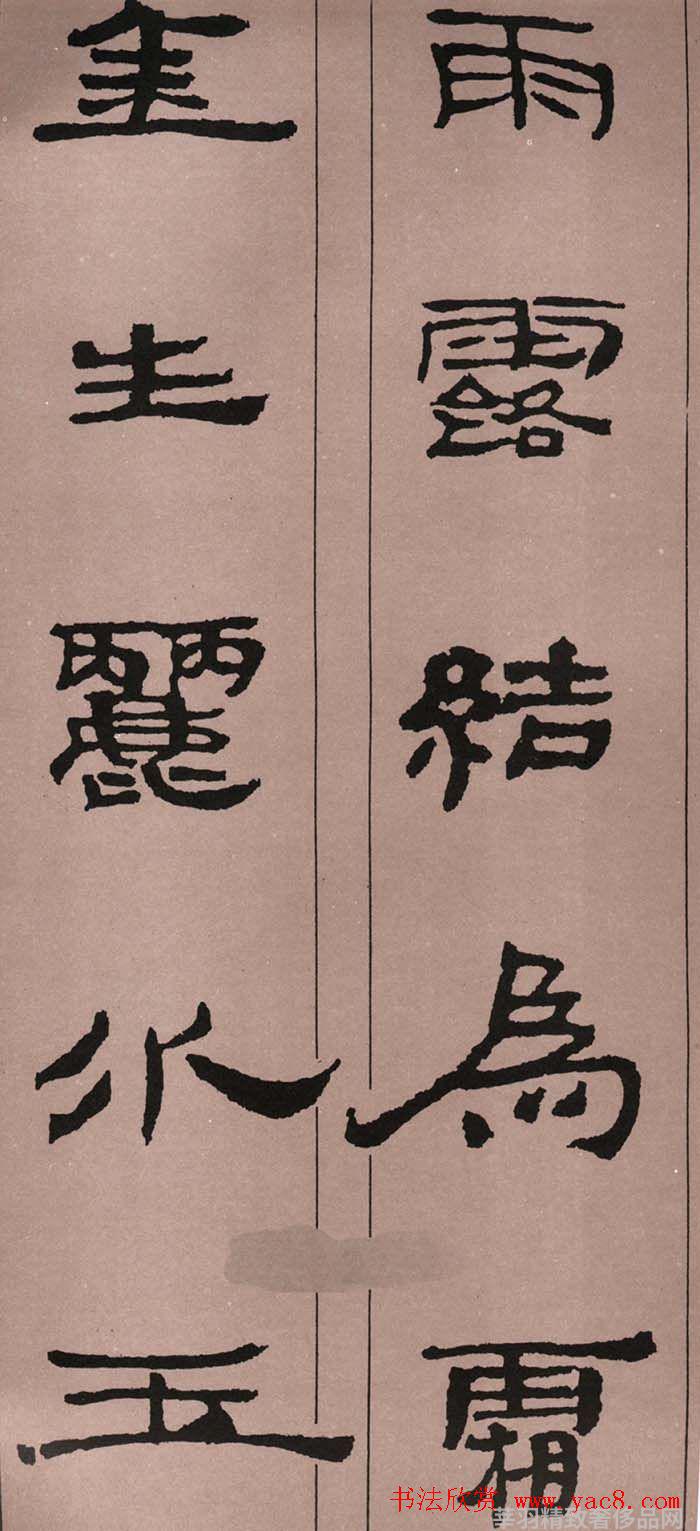 雨露結為霜
金生麗水玉
书法欣赏 www.yac8.com
羽精致奢侈品网